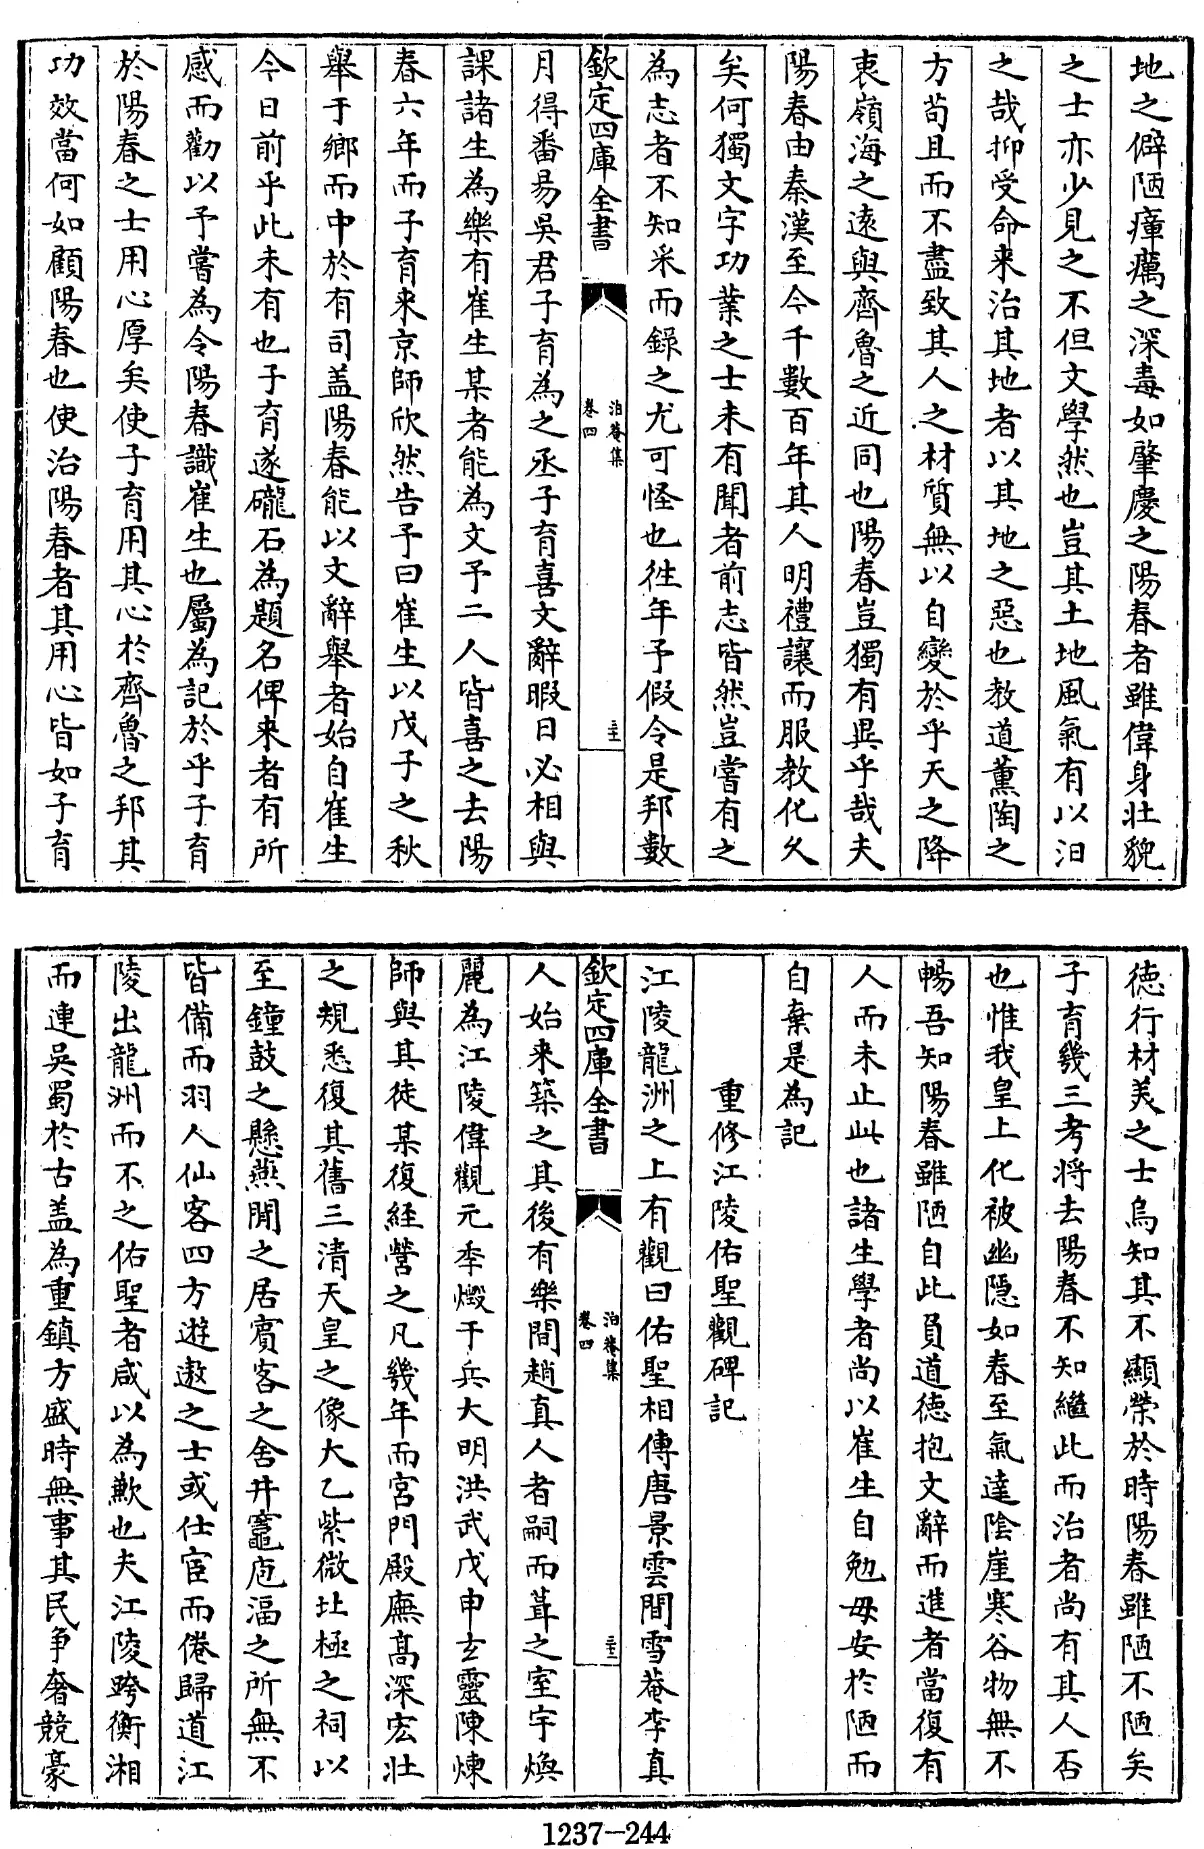 地之僻陋瘴癘之深毒如肇慶之陽春者雖偉身壯貌
之士亦少見之不但文學然也豈其土地風氣有以汩
之哉抑受命来治其地者以其地之惡也教道薰陶之
方苟且而不盡致其人之材質無以自變於乎天之降
衷嶺海之遠與齊魯之近同也陽春豈獨有異乎哉夫
陽春由秦漢至今千數百年其人明禮讓而服教化久
矣何獨文字功業之士未有聞者前志皆然豈嘗有之
為志者不知采而錄之尤可怪也往年予假令是邦數
欽定四庫全書
泊菴集
卷四
月得番昜吳君子育為之丞子育喜文辭暇日必相與
課諸生為樂有崔生某者能為文予二人皆喜之去陽
春六年而子育来京師欣然告予曰崔生以戊子之秋
舉于鄉而中於有司盖陽春能以文辭舉者始自崔生
今日前乎此未有也子育遂礲石為題名俾来者有所
感而勸以予嘗為令陽春識崔生也屬為記於乎子育
於陽春之士用心厚矣使子育用其心於齊魯之邦其
功效當何如顧陽春也使治陽春者其用心皆如子育
德行材美之士烏知其不顯榮於時陽春雖陋不陋矣
子育幾三考将去陽春不知繼此而治者尚有其人否
也惟我皇上化被幽隱如春至氣達陰崖寒谷物無不
暢吾知陽春雖陋自此負道德抱文辭而進者當復有
人而未止此也諸生學者尚以崔生自勉毋安於陋而
自棄是為記
重修江陵佑聖觀碑記
江陵龍洲之上有觀曰佑聖相傳唐景雲間雪菴李真
欽定四庫全書
泊菴集
卷四
人始来築之其後有樂間趙真人者嗣而葺之室宇煥
麗為江陵偉觀元季燬于兵大明洪武戊申玄靈陳煉
師與其徒某復經營之凡幾年而宮門殿廡髙深宏壯
之規悉復其舊三清天皇之像大乙紫微北極之祠以
至鐘鼓之懸燕閒之居賓客之舍井竈庖湢之所無不
皆備而羽人仙客四方遊遨之士或仕宦而倦歸道江
陵出龍洲而不之佑聖者咸以為歉也夫江陵跨衡湘
而連吳蜀於古盖為重鎮方盛時無事其民争奢競豪
1237-244